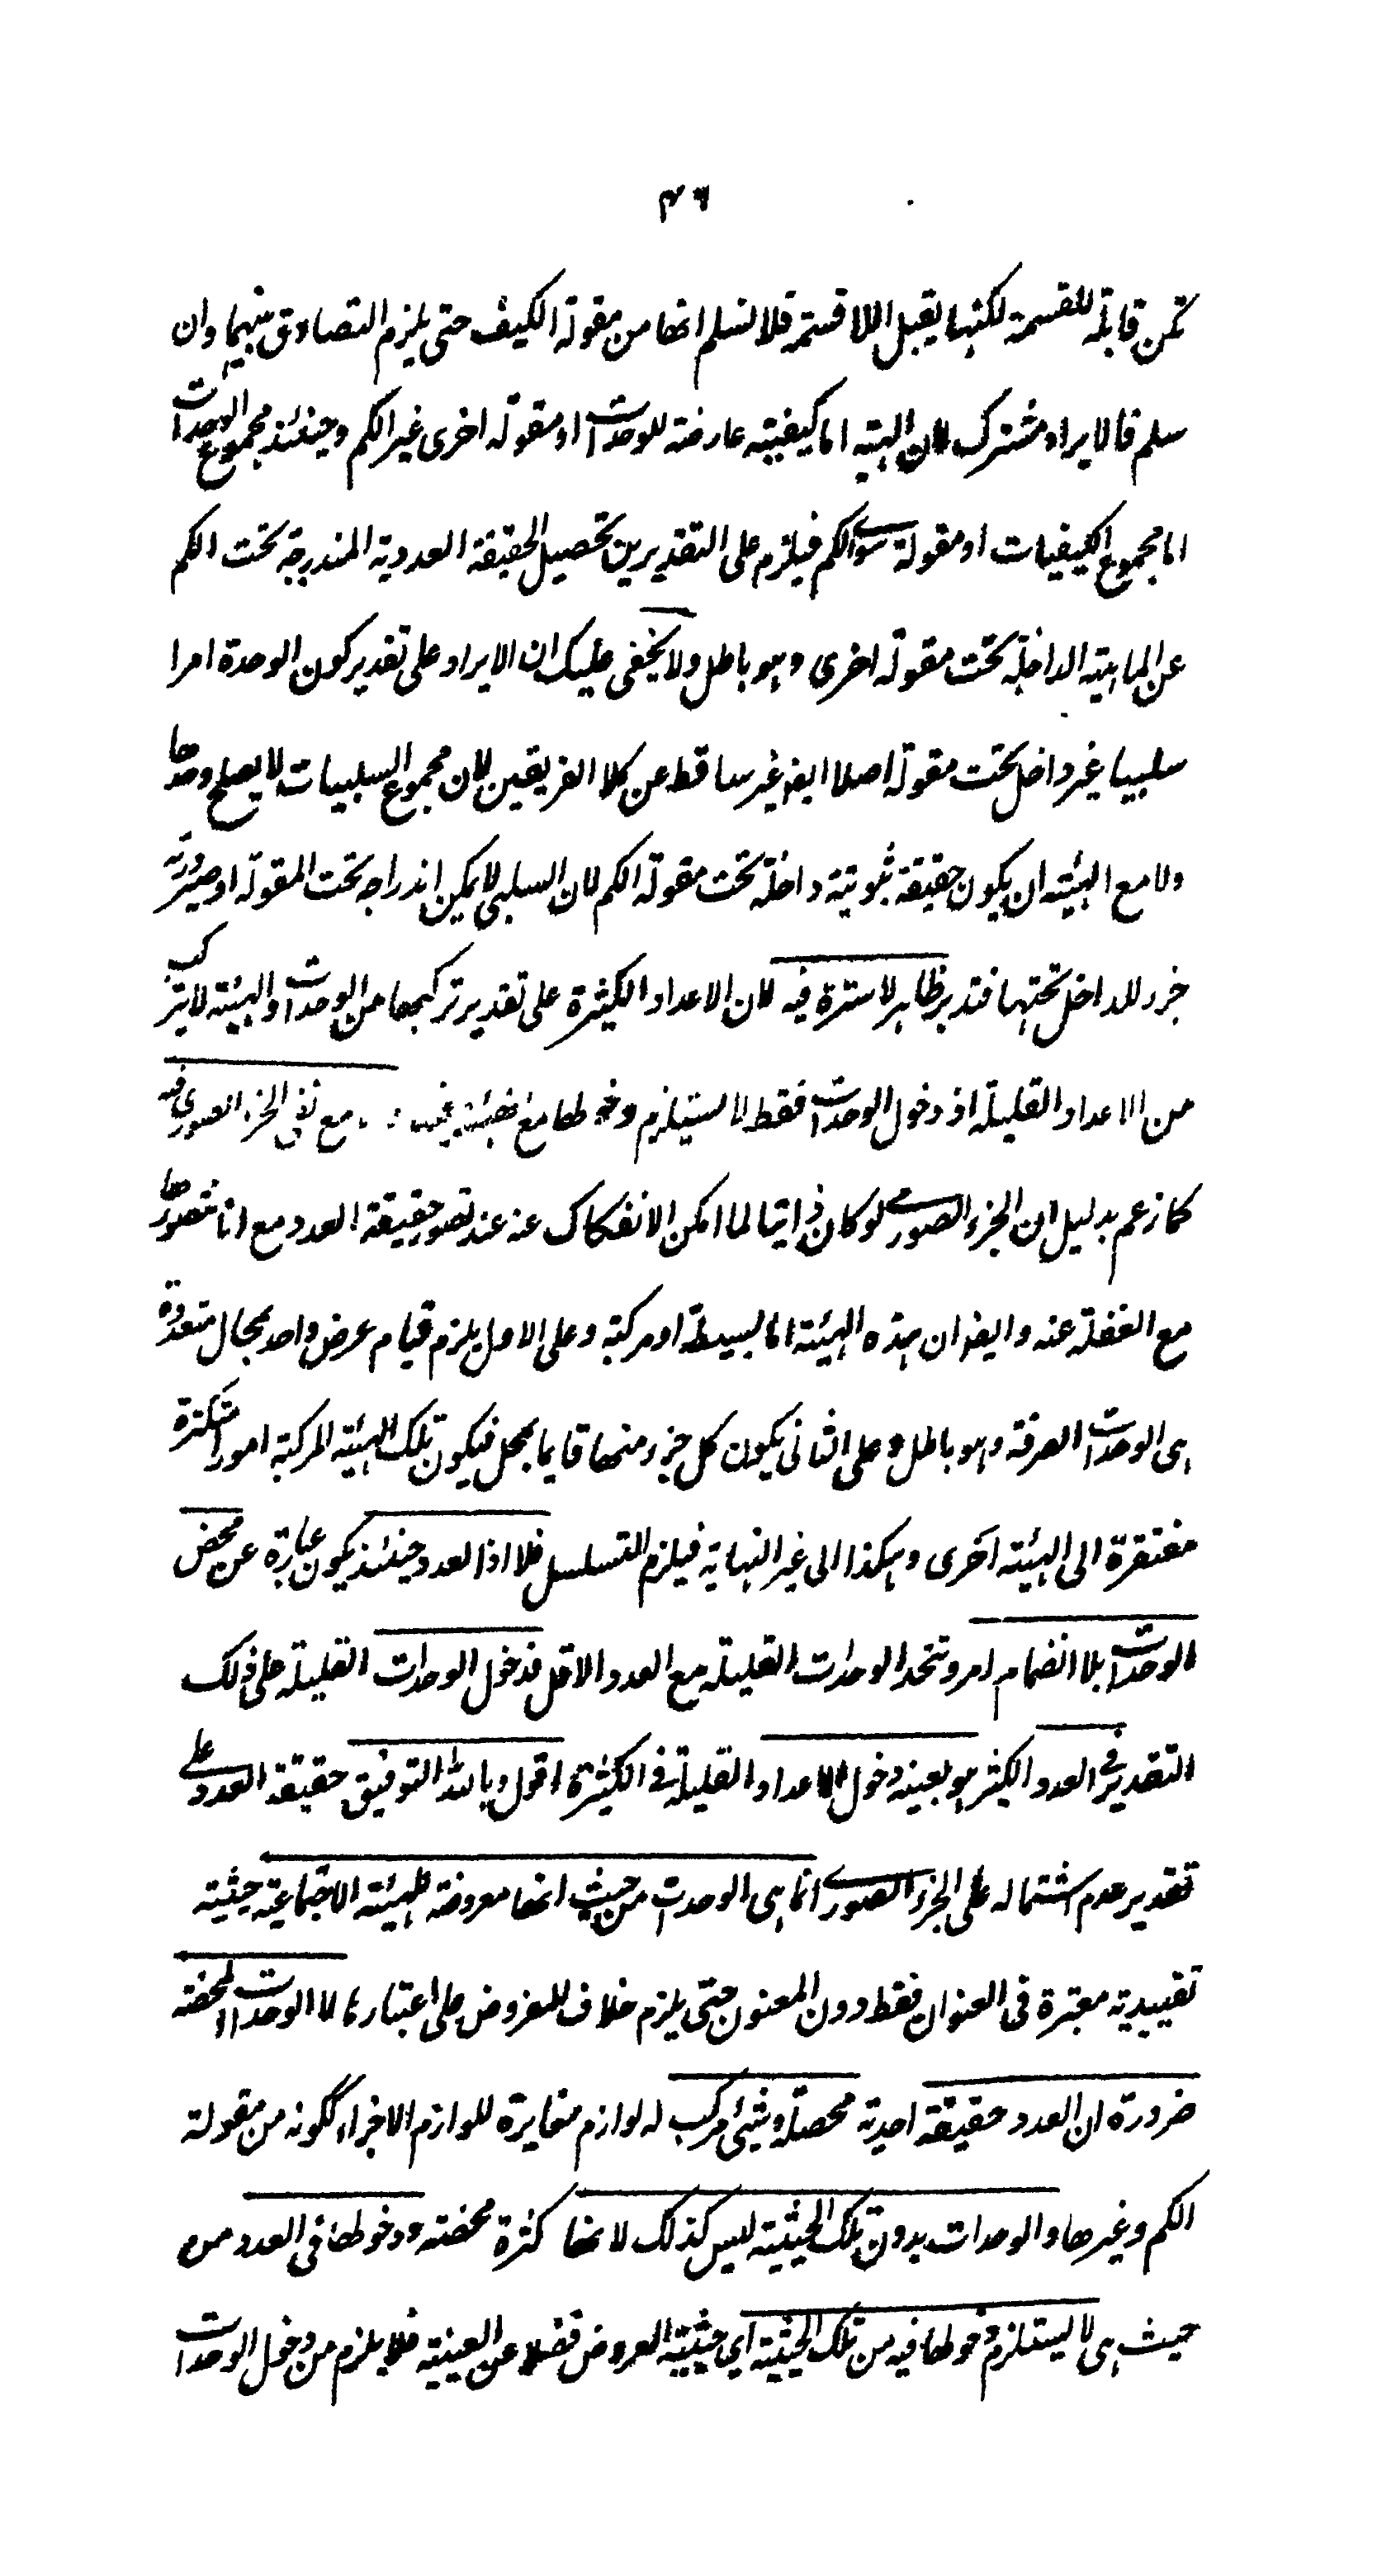 ٤٦
تكن قابلة للقسمة لكنها يقبل اللاقسمة فلا نسلم انها من مقولة الكيف حتى يلزم التصادق بينهما وان
سلم فالايراد مشترك لان الهيئة اما كيفية عارضة للوحدات او مقولة اخرى غير الكم وحينئذ مجموع الوحدات
اما مجموع الكيفيات او مقولة سوى الكم فيلزم على التقديرين تحصيل الحقيقة العددية المندرجة تحت الكم
عن الماهية الداخلة تحت مقولة اخرى وهو باطل ولا يخفى عليك ان الايراد على تقدير كون الوحدة امرا
سلبيا غير داخل تحت مقولة اصلا ايضا غير ساقط عن كلا الفريقين لان مجموع السلبيات لا يصلح وحدها
ولا مع الهيئة ان يكون حقيقة ثبوتية داخلة تحت مقولة الكم لان السلبي لا يمكن اندراجه تحت المقولة او صيرورته
جزء للداخل تحتها فتدبر ظاهر لا سترة فيه لان الاعداد الكثيرة على تقدير تركبها من الوحدات والهيئة لا يتركب
من الاعداد القليلة اذ دخول الوحدات فقط لا يستلزم دخولها مع مع نفى الجزء الصوري فيه
كما زعم بدليل ان الجزء الصوري لو كان ذاتيا لما امكن الانفكاك عنه عند تصور حقيقة العدد مع انا نتصورها
مع الغفلة عنه وايضا ان هذه الهيئة اما بسيطة او مركبة وعلى الاول يلزم قيام عرض واحد بمحال متعددة
هى الوحدات الصرفة وهو باطل وعلى الثانى يكون كل جزء منها قايما بمحل فيكون تلك الهيئة المركبة امورا متكثرة
مفتقرة الى الهيئة اخرى وهكذا الى غير النهاية فيلزم التسلسل فلا اذ العدد حينئذ يكون عبارة عن محض
الوحدات بلا انضمام امر وتتحد الوحدات القليلة مع العدد الاقل فدخول الوحدات القليلة على ذلك
التقدير في العدد الكثير هو بعينه دخول الاعداد القليلة فى الكثيرة اقول وبالله التوفيق حقيقة العدد على
تقدير عدم اشتماله على الجزء الصوري انما هى الوحدات من حيث انها معروضة للهيئة الاجتماعية حيثية
تقييدية معتبرة فى العنوان فقط دون المعنون حتى يلزم خلاف المفروض على اعتبارها لا الوحدات المحضة
ضرورة ان العدد حقيقة احدية محصلة وشئ مركب له لوازم مغايرة للوازم الاجزاء ككونه من مقولة
الكم وغيرها والوحدات بدون تلك الحيثية ليس كذلك لانها كثرة محضة ودخولها فى العدد من
حيث هى لا يستلزم دخولها فيه من تلك الحيثية اي حيثية العروض فضلا عن العينية فلا يلزم من دخول الوحدات